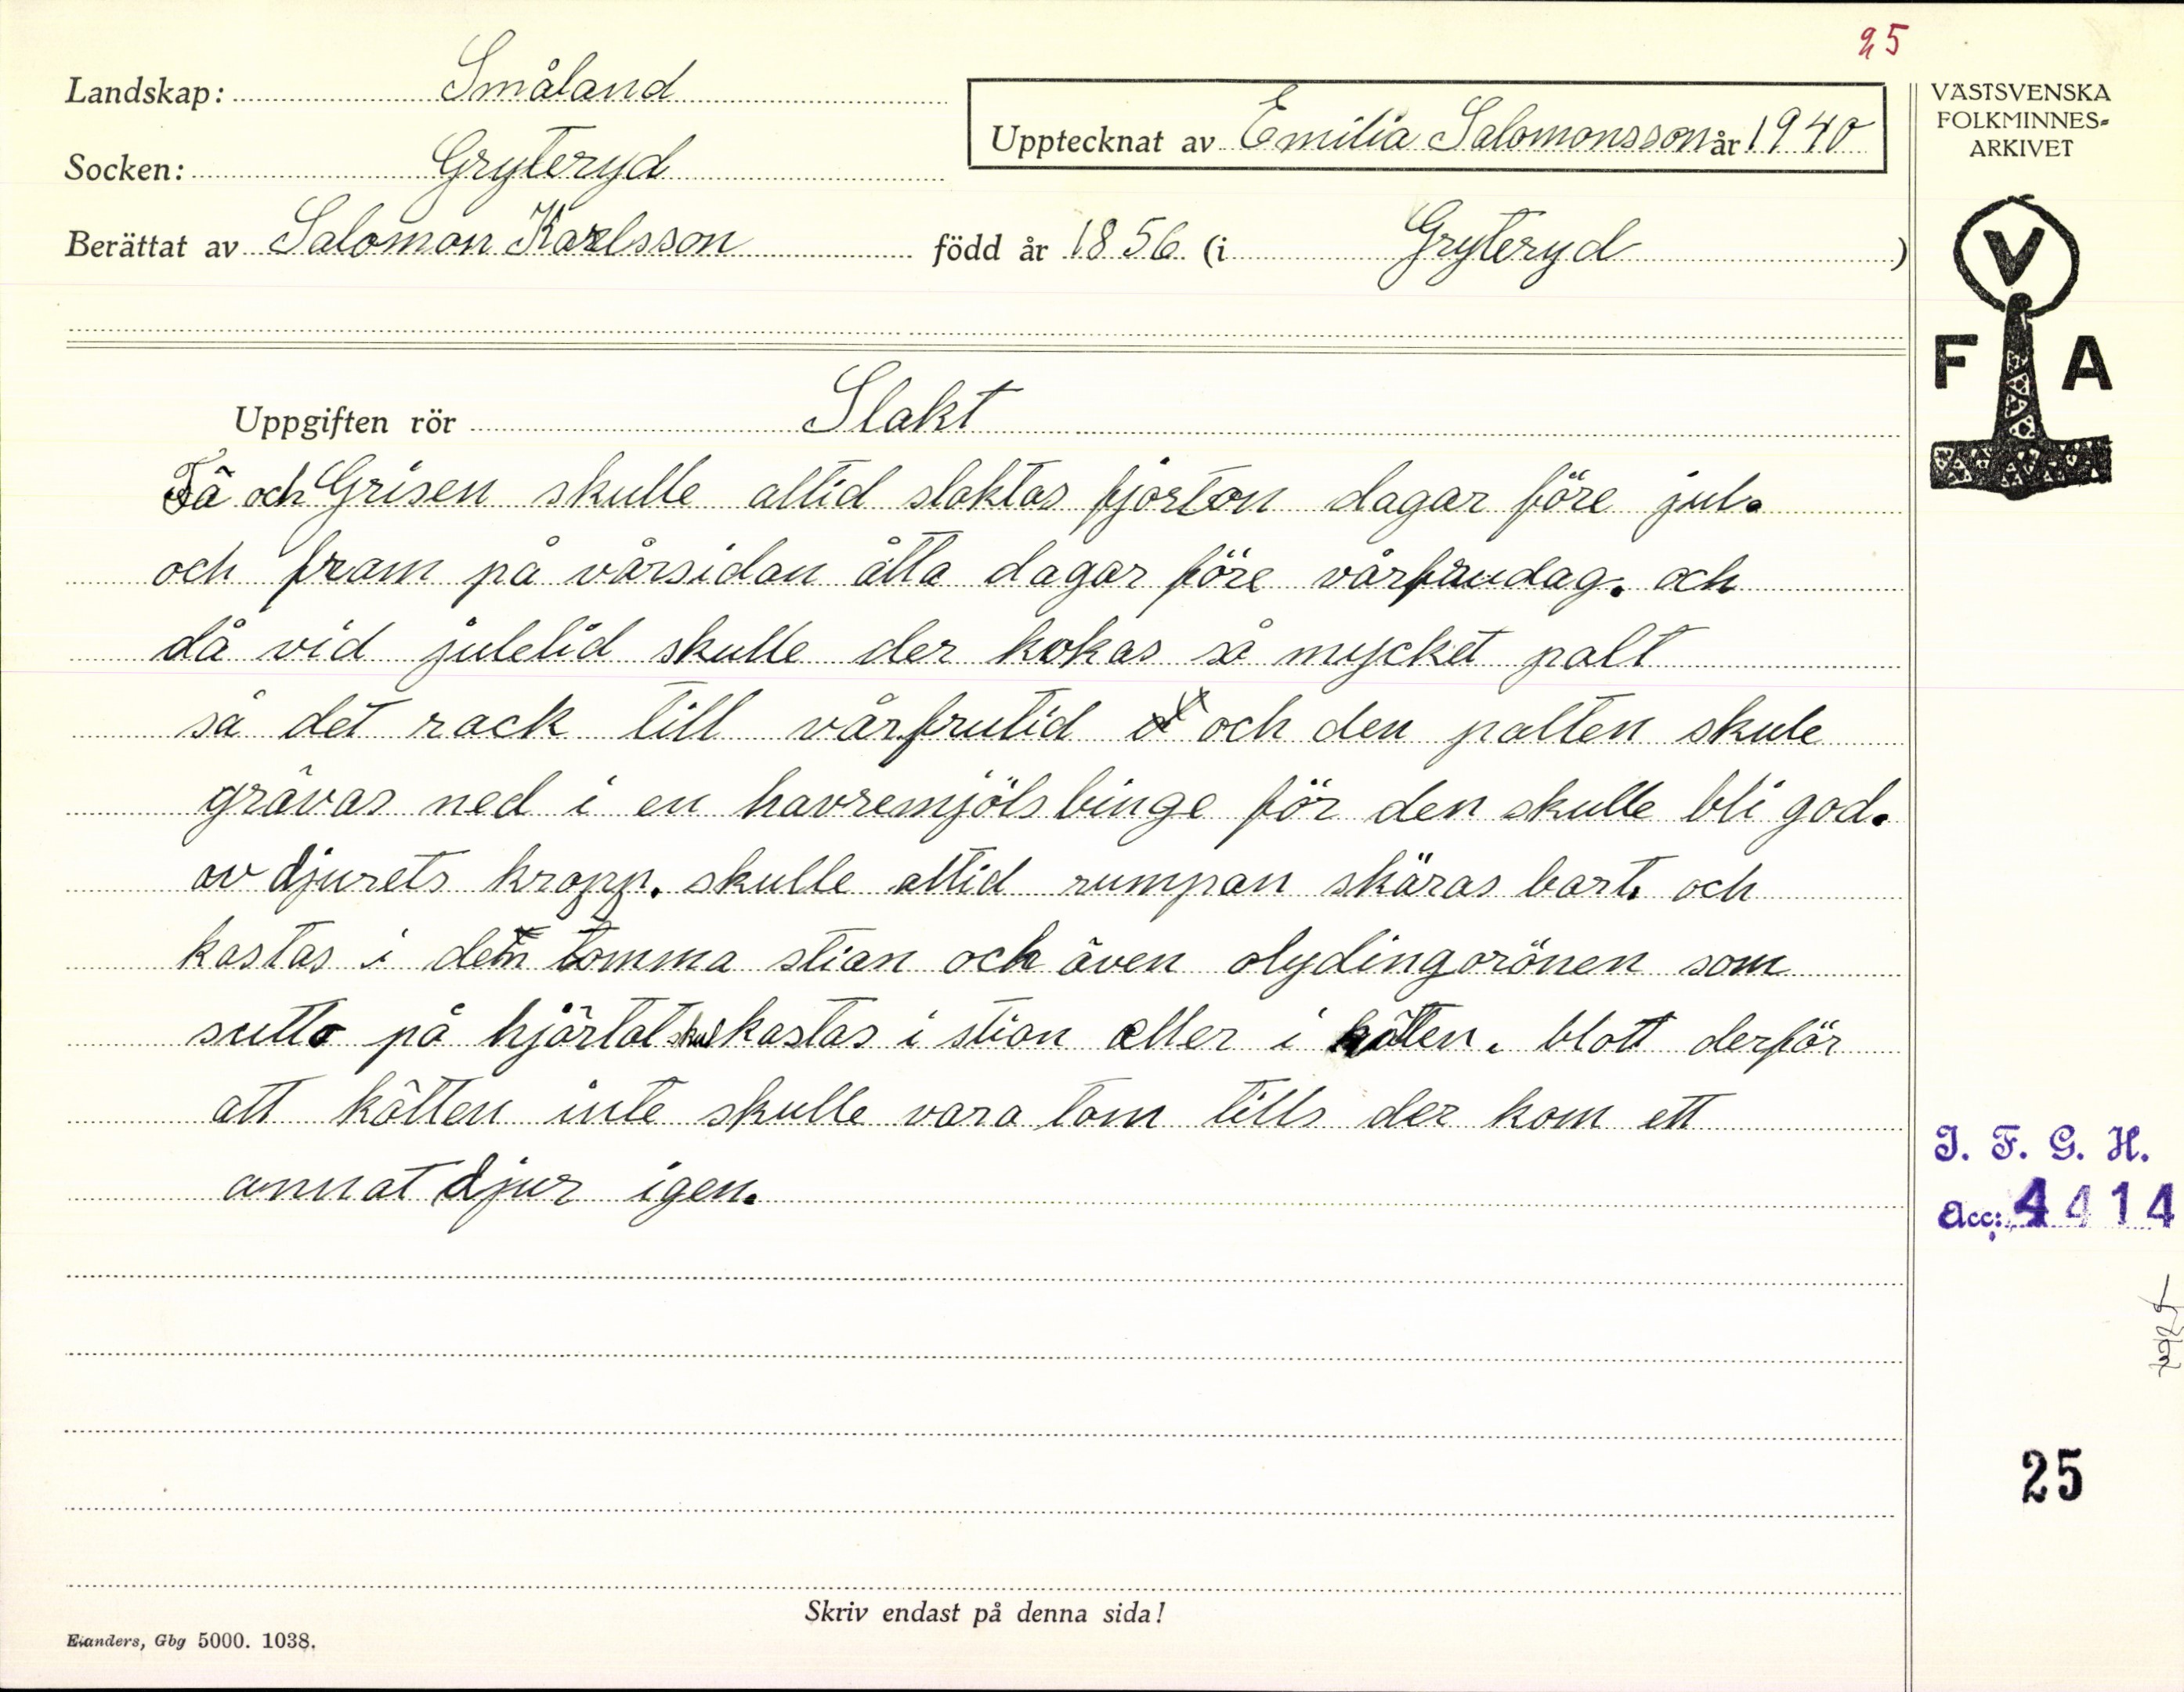 25
Landskap: Småland
Upptecknat av Emilia Salomonsson år 1940
Socken: Gryteryd
Berättat av Salomon Karlsson född år 1856 (i Gryteryd)
VÄSTSVENSKA
FOLKMINNES-
ARKIVET
V
F A
Uppgiften rör Slakt
Få och Grisen skulle altid slaktas fjorton dagar före jul.
och fram på vårsidan åtta dagar före vårfrudag. och
då vid juletid skulle der kokas så mycket palt
så det rack till vårfrutid och den palten skule
grävas ned i en havremjölsbinge för den skulle bli god.
av djurets kropp. skulle altid rumpan skäras bort. och
kastas i den tomma stian och även olydingorönen som
sutto på hjärtat skul kastas i stian eller i kätten. blott derför
att kätten inte skulle vara tom tills der kom ett
annat djur igen.
I. F. G. H.
Acc: 4414
25
Skriv endast på denna sida!
Elanders, Gbg 5000. 1038.